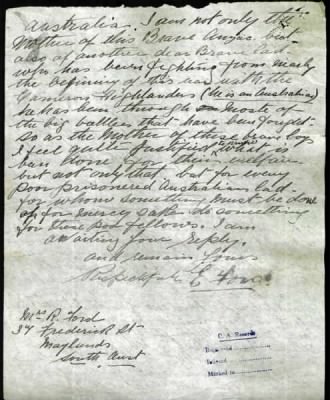 Australia. I am not only the
Mother of this Brave Anzac but
also of another dear Brave Lad
who has been fighting from nearly
the begining of this war with the
Camerons Highlanders (he is an Australian)
he has been through most of
the big battles that have been fought
so as the Mother of these brave boys
I feel quite Justified to what is
been done for their welfare
but not only that, but for every
poor prisoner Australian lad
for whom something must be done
oh for mercy sake do something
for these poor fellows. I am
awaiting your reply.
and remain yours
Respectfuly E Ford
Mrs R. Ford
37 Frederick St
Maylands
South Aust
C. A. Records